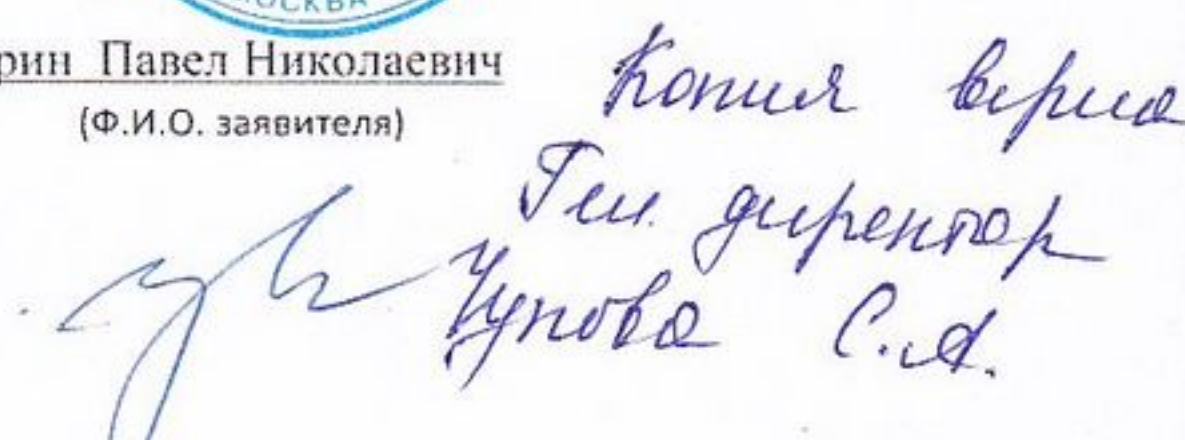 МОСКВА
рин Павел Николаевич
(Ф.И.О. заявителя)
Копия верна
Ген. директор
С.А.